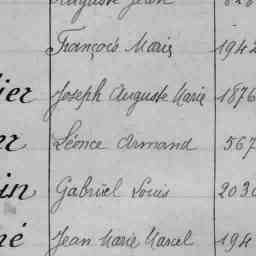 Auguste Jean 828
François Marie 1942
ier Joseph Auguste Marie 1876
er Léonce Armand 567
in Gabriel Louis 2030
né Jean Marie Marcel 194